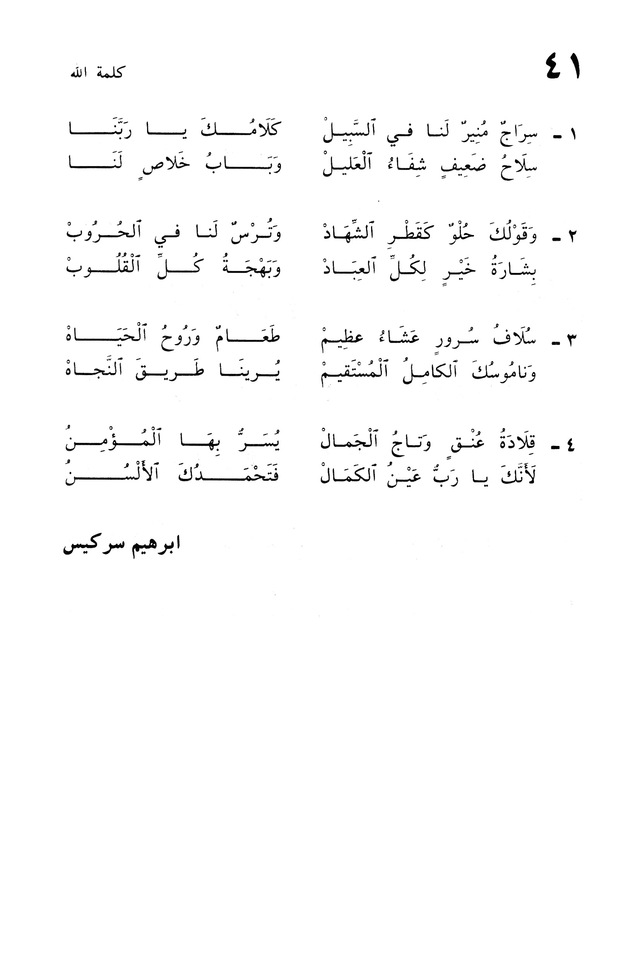 ٤١
كلمة الله
١ - سِرَاجٌ مُنِيرٌ لَنا في ٱلسَّبِيلْ كَلَامُكَ يا رَبَّنَا
سِلَاحُ ضَعِيفٍ شِفَاءُ ٱلْعَلِيلْ وَبَابُ خَلاصٍ لَنَا
٢ - وَقَوْلُكَ حُلْوٌ كَقَطْرِ ٱلشِّهَادْ وَتُرْسٌ لَنا في ٱلحُرُوبْ
بِشَارَةُ خَيْرٍ لِكُلِّ ٱلعِبَادْ وَبَهْجَةُ كُلِّ ٱلْقُلُوبْ
٣ - سُلَافُ سُرورٍ عَشَاءُ عظِيمْ طَعَامٌ وَرُوحُ ٱلْحَيَاهْ
وَنامُوسُكَ ٱلكامِلُ ٱلْمُسْتَقيمْ يُرينَا طَريقَ ٱلنَّجاهْ
٤ - قِلادَةُ عُنْقٍ وَتاجُ ٱلْجَمَالْ يُسَرُّ بِهَا ٱلْمُؤْمِنُ
لَأَنَّكَ يا رَبُّ عَيْنُ ٱلكَمَالْ فَتَحْمَدُكَ ٱلأَلْسُنُ
ابرهيم سركيس